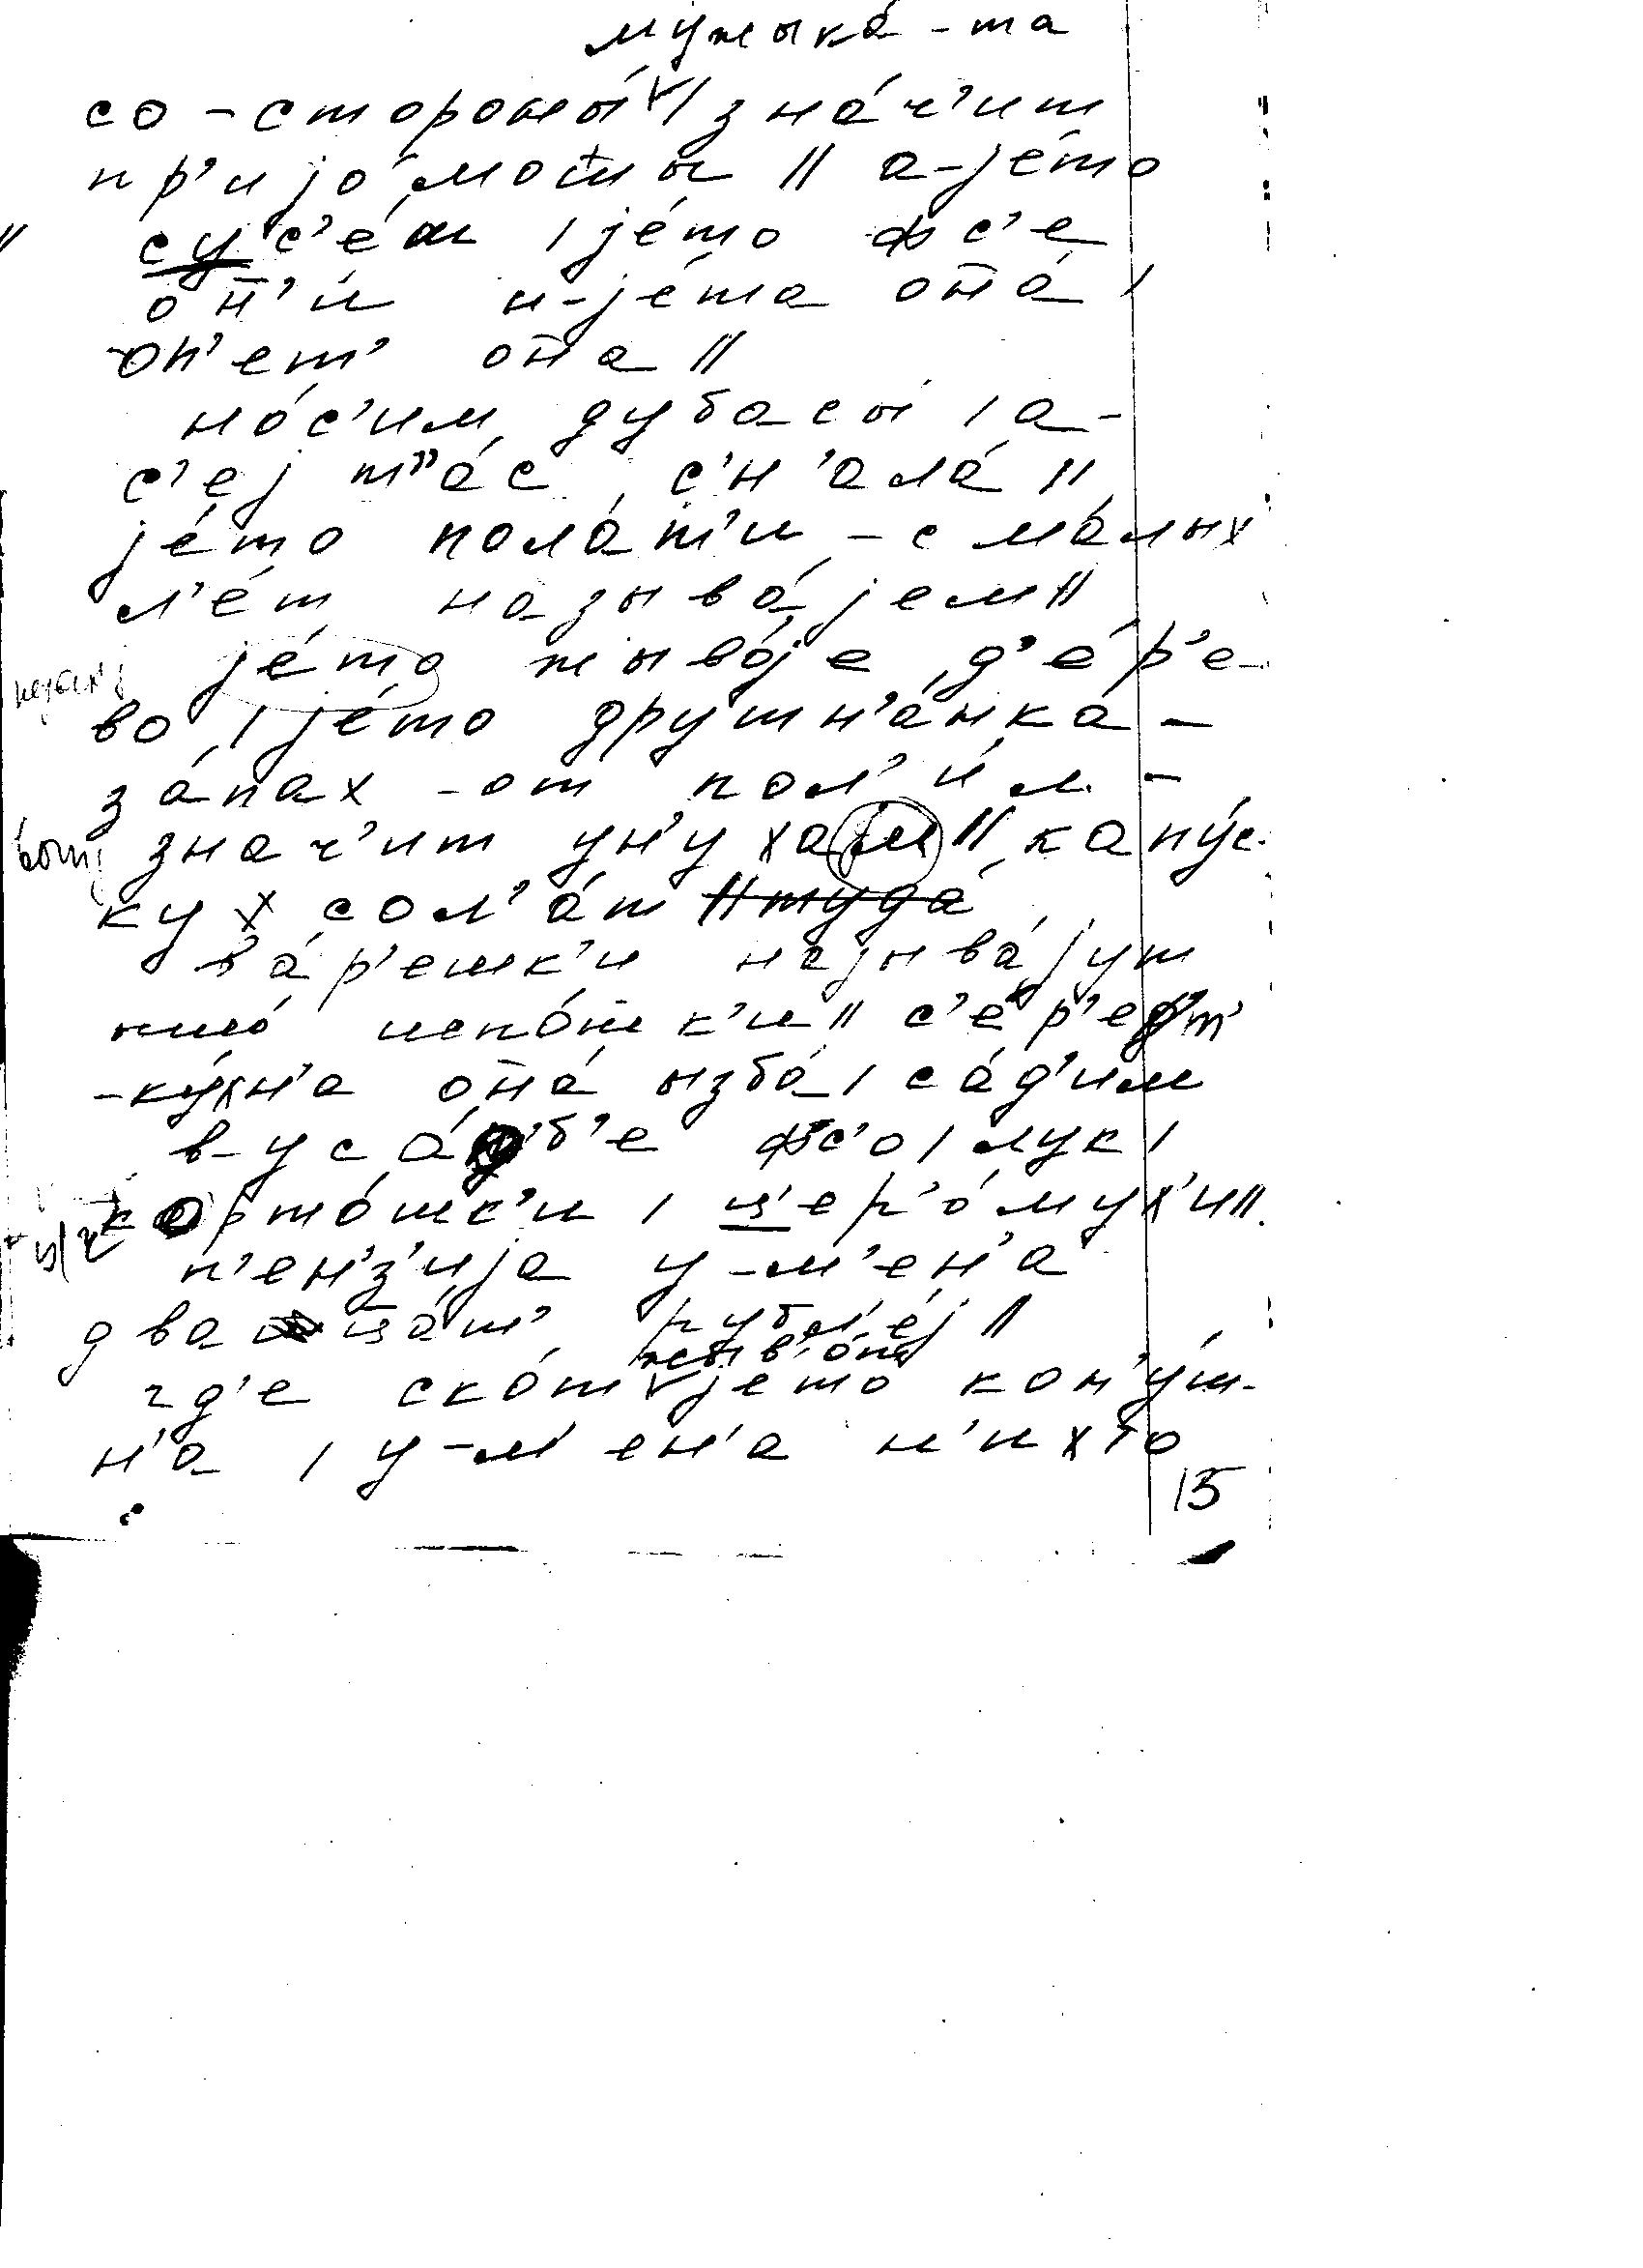 мужыка́-та
со-стороны́ / зна́ч'ит
пр'ијо́мо̄ш || а-је́то
су с'е́ | је́то фс'е
он̄'и́ и-је́та он̄а́ /
оп'ет' он̄а ||
но́с'им дубасы́ / а-
с'еј ч'ас с'н'ала́ ||
је́то пола́т'и - с ма́лых
л'е́т называ́јем ||
је́то жыво́је д'е́р'е-
во / је́то друшн'а́нка -
за́пах -от пол'и́м -
знач'ит ун'ухам || капу́с-
ку х сол'а́т || туда́
ва́р'ешк'и называ́јут
испо́тк'и || с'е́р'ет'
-ку́хн'а он̄а́ ызба́ / са́д'им
в-уса́д'б'е фс'о / лук /
карто́шк'и / ц'ер'о́мух'и ||
п'ен'з'ија у-м'ен'а
два цат' рубл'еј ||
жыв'о́т
гд'е ско́т је́то кон'у́ш-
н'а / у-м'ен'а н'ихто
15